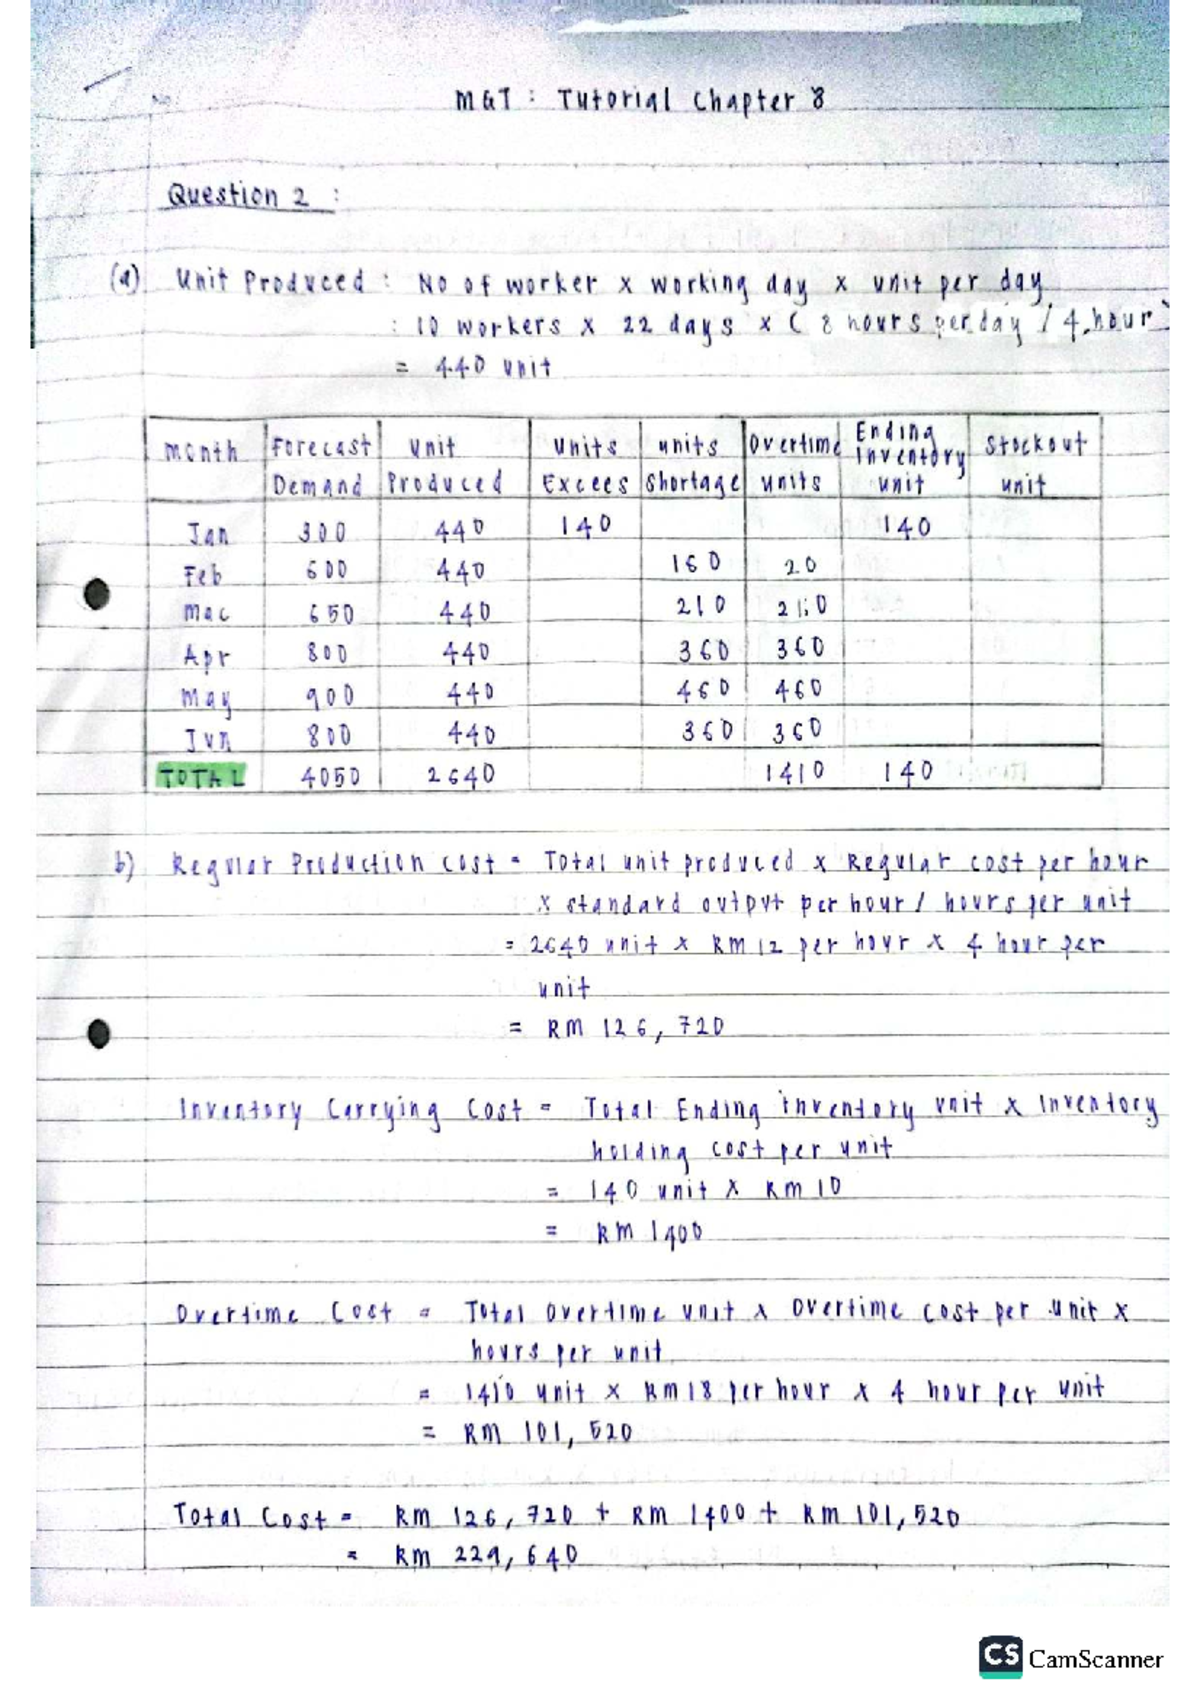 MGT : Tutorial Chapter 8
Question 2 :
(a) Unit Produced : No of worker x working day x unit per day
: 10 workers x 22 days x ( 8 hours per day / 4 hour )
= 440 unit
Month Forecast Demand Unit Produced Units Excees Units Shortage Overtime units Ending Inventory unit Stockout unit
Jan 300 440 140 140
Feb 600 440 160 20
Mac 650 440 210 210
Apr 800 440 360 360
May 900 440 460 460
Jun 800 440 360 360
TOTAL 4050 2640 1410 140
b) Regular Production cost = Total unit produced x Regular cost per hour
x standard output per hour / hours per unit
= 2640 unit x RM 12 per hour x 4 hour per
unit
= RM 126, 720
Inventory Carrying Cost = Total Ending inventory unit x Inventory
holding cost per unit
= 140 unit x RM 10
= RM 1400
Overtime Cost = Total overtime unit x overtime cost per unit x
hours per unit
= 1410 unit x RM 18 per hour x 4 hour per unit
= RM 101, 520
Total Cost = RM 126, 720 + RM 1400 + RM 101, 520
= RM 229, 640
CS CamScanner